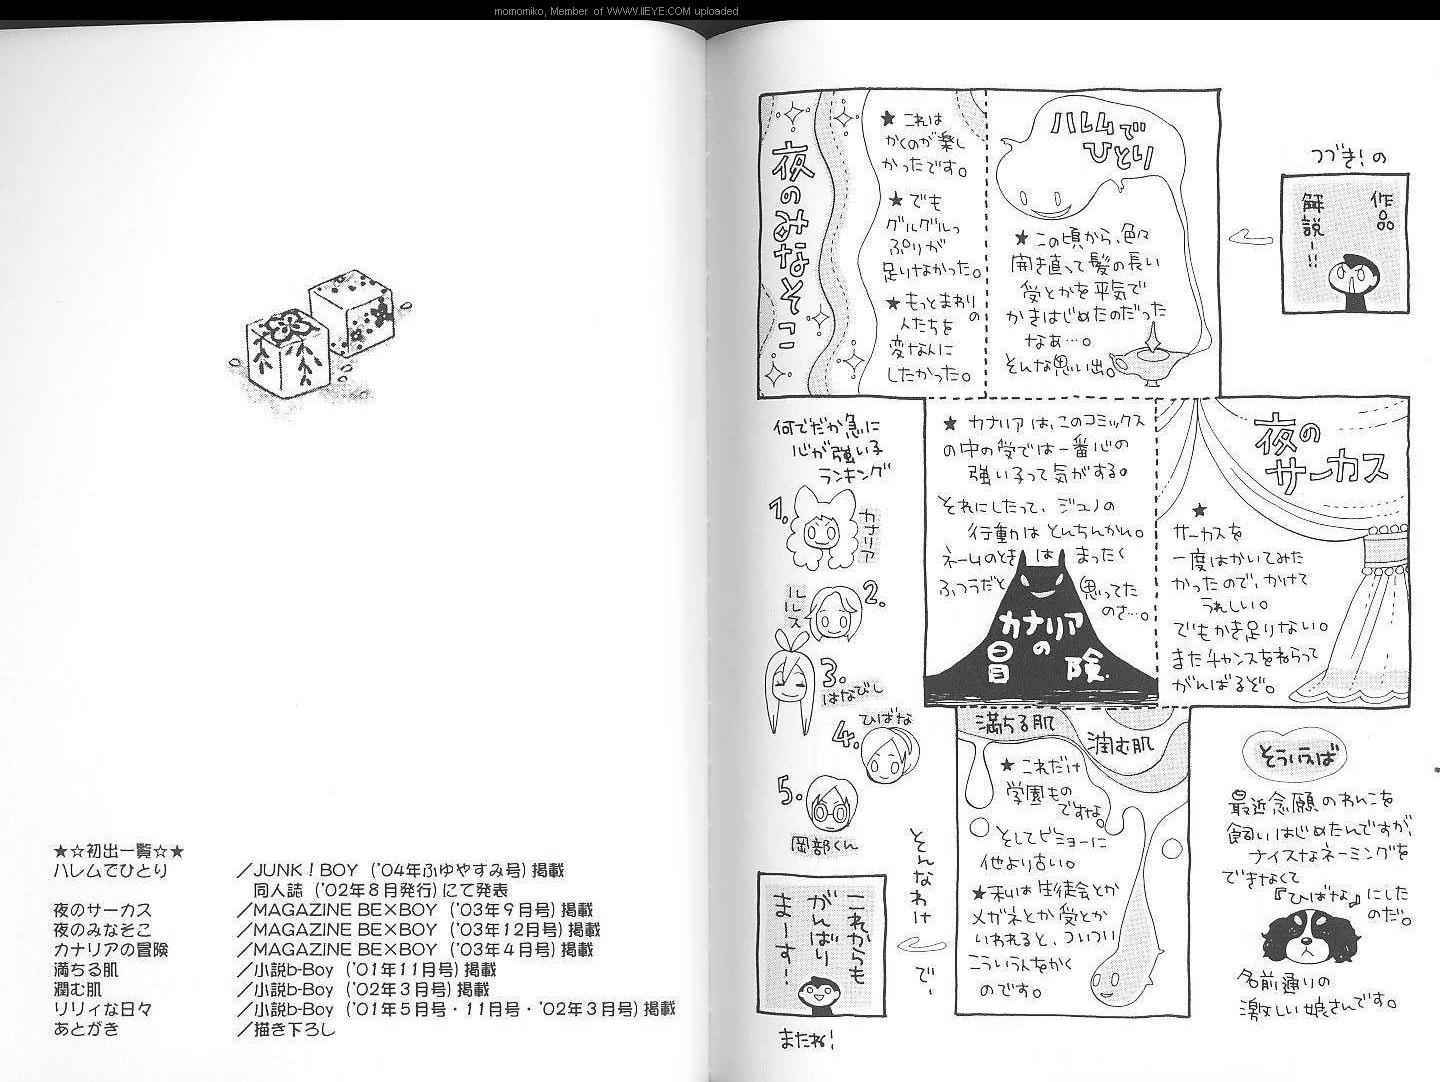 momomiko, Member of WWW.IIEYE.COM uploaded
つづき!の
作品
解説ー!!
ハレムで
ひとり
★この頃から、色々
開き直って髪の長い
受とかを平気で
かきはじめたのだった
なぁ…。
そんな思い出。
夜のみなそこ
★これは
かくのが楽し
かったです。
★でも
グルグルっ
ぷりが
足りなかった。
★もっとまわりの
人たちを
変な人に
したかった。
夜の
サーカス
★
サーカスを
一度はかいてみた
かったので、かけて
うれしい。
でもかき足りない。
またチャンスをねらって
がんばるぞ。
★カナリアは、このコミックス
の中の受では一番心の
強い子って気がする。
それにしたって、ジュノの
行動はとんちんかん。
ネームのときはまったく
ふつうだと思ってた
のさ…。
カナリア
の
冒険
何でだか急に
心が強い子
ランキング
1.
カナリア
2.
ルルス
3.
はなびし
4.
ひばな
5.
岡部くん
満ちる肌
潤む肌
★これだけ
学園もの
ですな。
そしてビミョーに
他より古い。
★私は生徒会とか
メガネとか受とか
いわれると、ついつい
こういう人をかく
のです。
そういえば
最近念願のわんこを
飼いはじめたんですが、
ナイスなネーミングを
できなくて
『ひばな』にした
のだ。
名前通りの
激しい娘さんです。
そんなわけ
で、
これからも
がんばり
まーす!
またね!
★☆初出一覧☆★
ハレムでひとり ／JUNK！BOY（'04年ふゆやすみ号）掲載
同人誌（'02年8月発行）にて発表
夜のサーカス ／MAGAZINE BE×BOY（'03年9月号）掲載
夜のみなそこ ／MAGAZINE BE×BOY（'03年12月号）掲載
カナリアの冒険 ／MAGAZINE BE×BOY（'03年4月号）掲載
満ちる肌 ／小説b-Boy（'01年11月号）掲載
潤む肌 ／小説b-Boy（'02年3月号）掲載
リリィな日々 ／小説b-Boy（'01年5月号・11月号・'02年3月号）掲載
あとがき ／描き下ろし